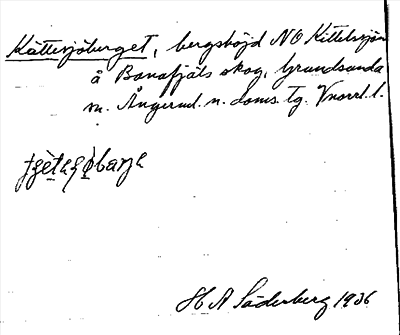 Kättesjöberget, bergshöjd NO Kittelsjön
å Banafjäls skog, Grundsunda
sn. Ångerml. n. doms. tg. Vnorrl. l.
H A Söderberg 1936